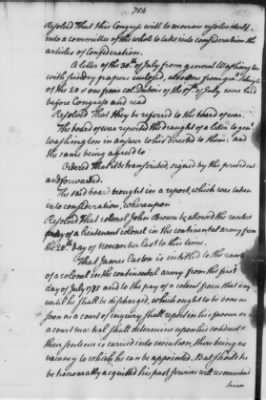 Resolved That this Congress will to morrow resolve itself
into a committee of the whole to take into consideration the
articles of Confederation.
A letter of the 30th of July from general Washington
with sundry papers inclosed, also one from genl
of the 20 & one from col. Dubois of the 17th of July were laid
before Congress and read
Resolved That they be referred to the board of war.
The board of war reported the draught of a letter to genl
Washington in answer to his directed to them; and
the same being agreed to
Ordered That it be transcribed, signed by the president
and forwarded.
The said board brought in a report, which was taken
into consideration, whereupon
Resolved That colonel John Brown be allowed the rank &
pay of a lieutenant colonel in the continental army from
the 20th day of November last to this time.
That James Easton is entitled to the rank
of a colonel in the continental army from the first
day of July and to the pay of a colonel from that day
until he shall be discharged, which ought to be done as
soon as a court of inquiry shall report in his favour or
a court martial shall determine upon his conduct &
their sentence is carried into execution, there being no
vacancy to which he can be appointed. But should he
be honourably acquitted his past services will recommend
him